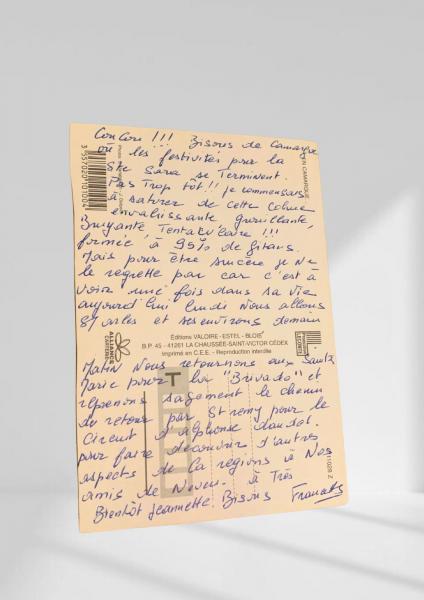 CouCou !!! Bisous de Camargue
où les festivités pour la
Ste Sara se Terminent.
Pas Trop tôt!! je commensais
à saturer de cette cohue
envahissante grouillante,
Bruyante Tentaculaire !!!
formée à 95% de gitans.
Mais pour être sincère je Ne
le regrette pas car c'est à
voir une fois dans sa vie
aujourd'hui lundi Nous allons
sur arles et ses environs demain
Matin Nous retournons aux Saintes
Marie pour la "Brivado" et
reprenons sagement le chemin
du retour par St remy pour le
Circuit d'alphonse daudet.
pour faire découvrir d'autres
aspects de la régions à Nos
amis de Nevers. à Très
Bientôt Jeannette. Bisous
EN CAMARGUE
3 557020 101001
ALLIANCE
CARTERIE
Éditions VALOIRE - ESTEL - BLOIS
B.P. 45 - 41261 LA CHAUSSÉE-SAINT-VICTOR CÉDEX
Imprimé en C.E.E. - Reproduction interdite
T